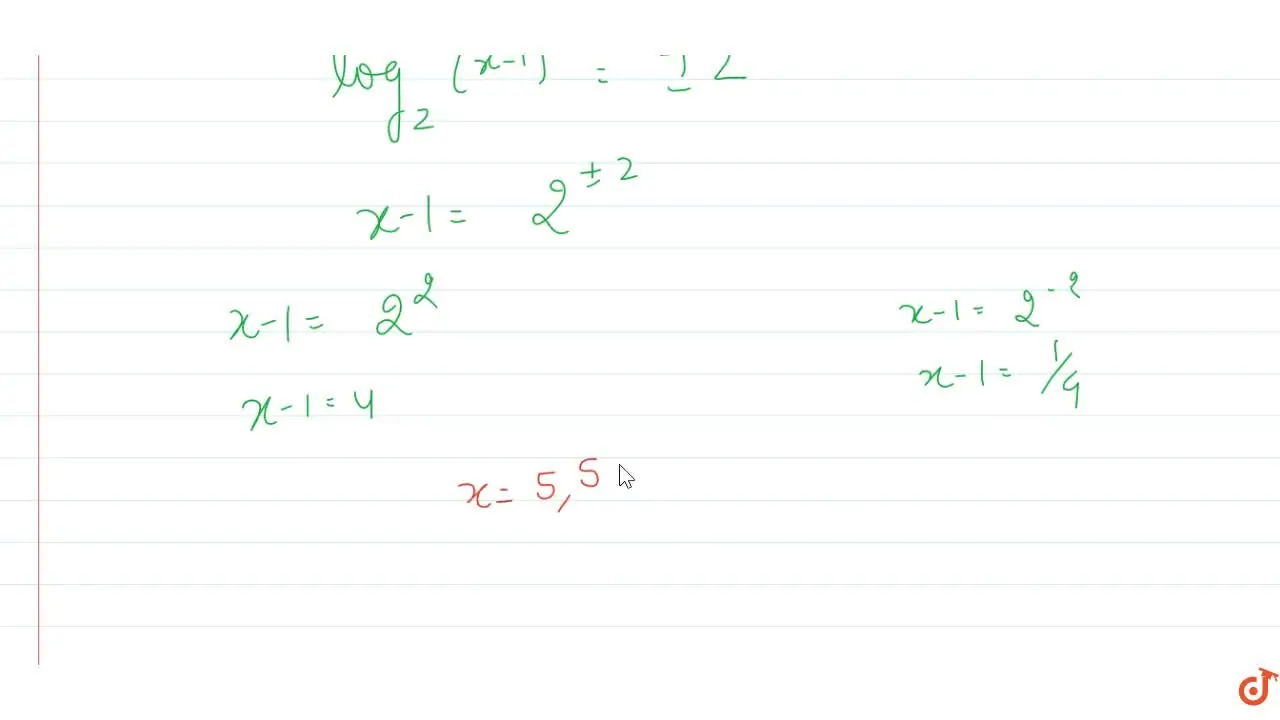 log₂ (x-1) = ± 2
x-1 = 2^{± 2}
x-1 = 2^2
x-1 = 2^{-2}
x-1 = 4
x-1 = 1/4
x = 5, 5